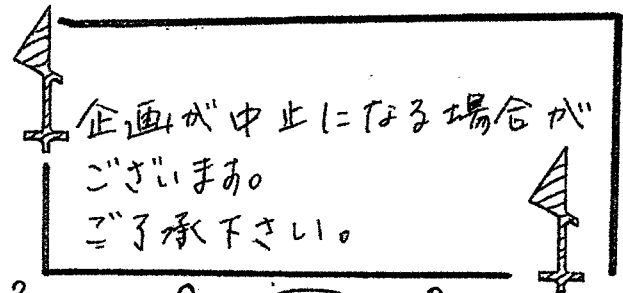 企画が中止になる場合が
ございます。
ご了承下さい。